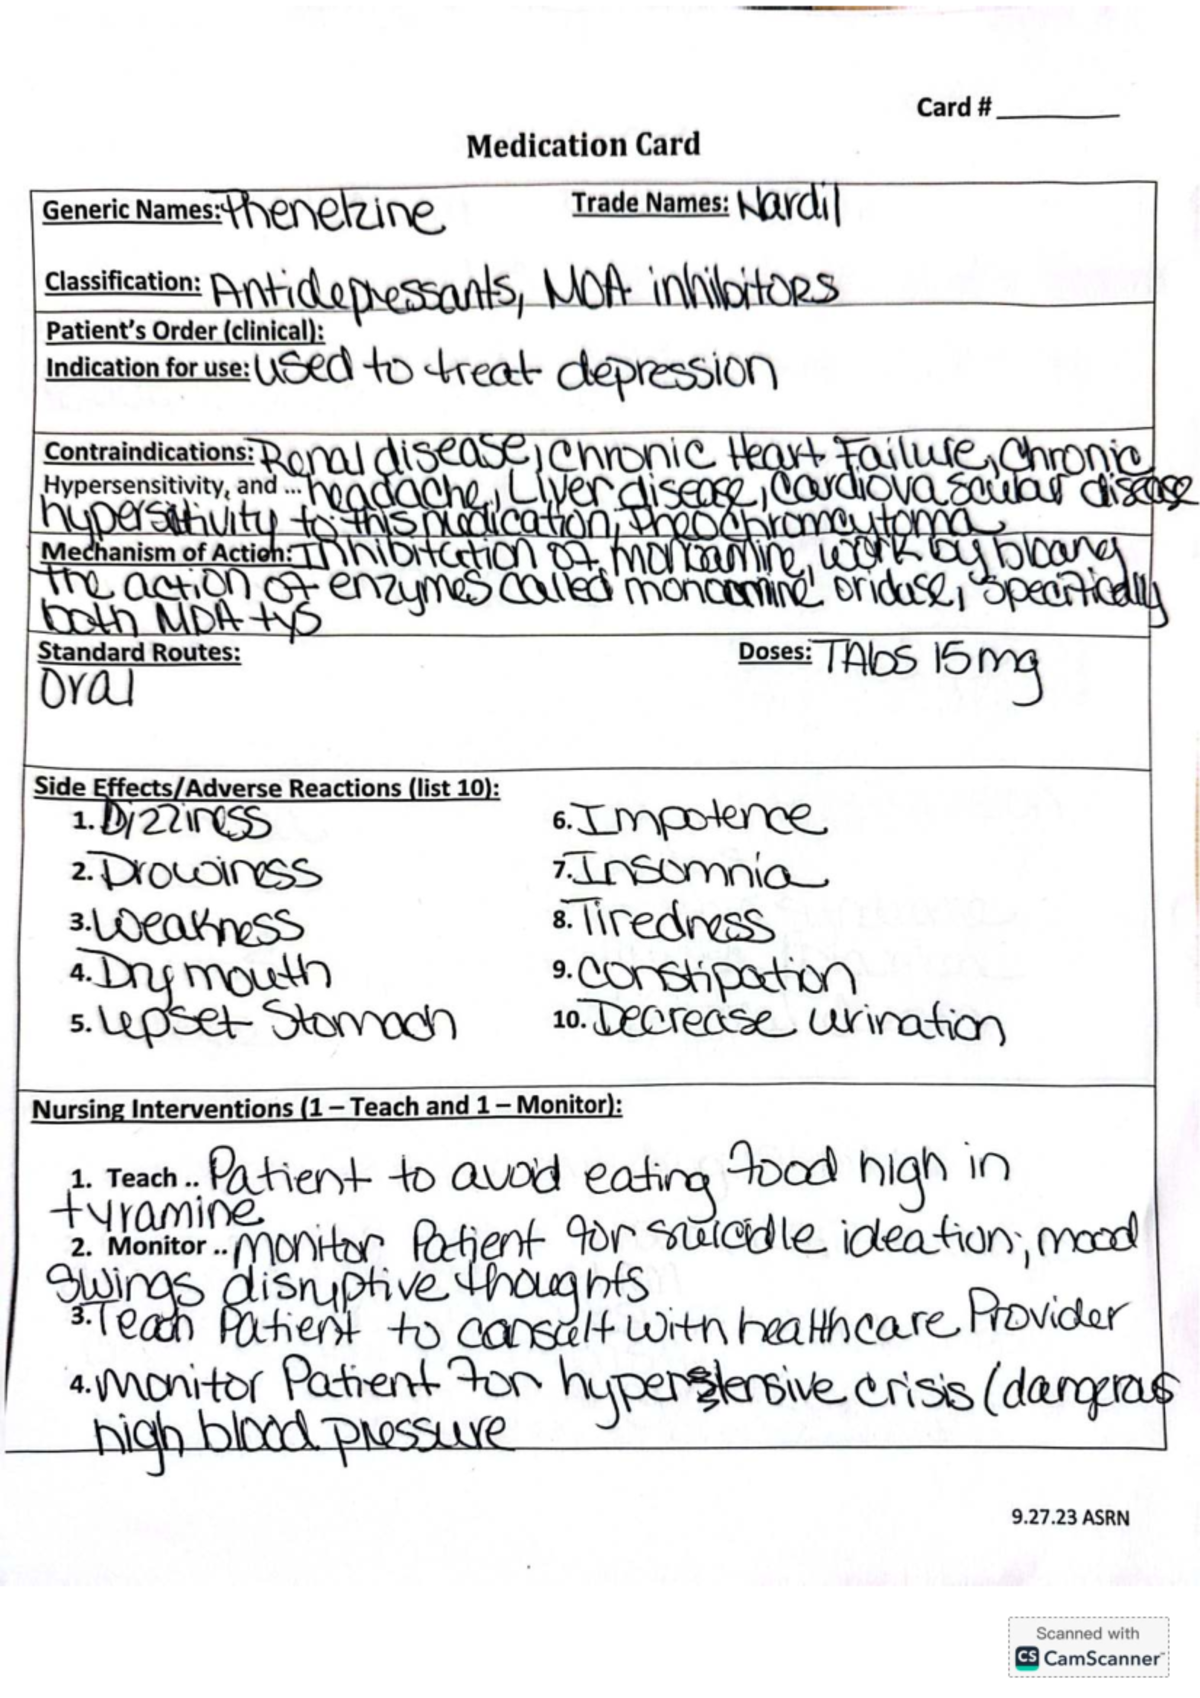 Card # ________
Medication Card
Generic Names: Phenelzine Trade Names: Nardil
Classification: Antidepressants, MOA inhibitors
Patient's Order (clinical):
Indication for use: used to treat depression
Contraindications: Renal disease, Chronic Heart Failure, Chronic
Hypersensitivity, and ... headache, Liver disease, Cardiovascular disease
to this medication, Pheochromcytoma
Mechanism of Action: of work by
the action of enzymes called specifically
both MOA
Standard Routes: Doses: TAbs 15mg
Oral
Side Effects/Adverse Reactions (list 10):
1. Dizziness 6. Impotence
2. Drowiness 7. Insomnia
3. Weakness 8. Tiredness
4. Dry mouth 9. constipation
5. Upset Stomach 10. Decrease urination
Nursing Interventions (1 – Teach and 1 – Monitor):
1. Teach .. Patient to avoid eating food high in
tyramine
2. Monitor .. monitor Patient for ideation, mood
Swings disruptive thoughts
3. Teach Patient to consult with healthcare Provider
4. monitor Patient for crisis (dangerous
high blood pressure
9.27.23 ASRN
Scanned with
CS CamScanner